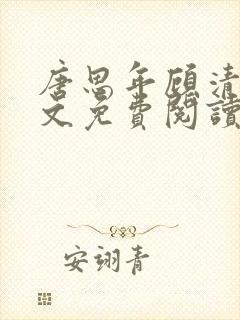 唐思年顾清
文免費閱讀
安翊青